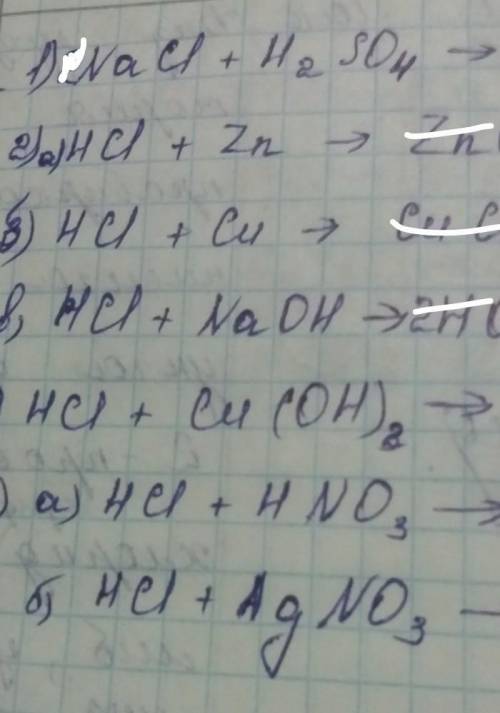 1) NaCl + H₂SO₄ →
2) а) HCl + Zn → Zn
б) HCl + Cu → Cu C
в) HCl + NaOH → 2H
) HCl + Cu(OH)₂ →
) а) HCl + HNO₃ →
б) HCl + AgNO₃ —